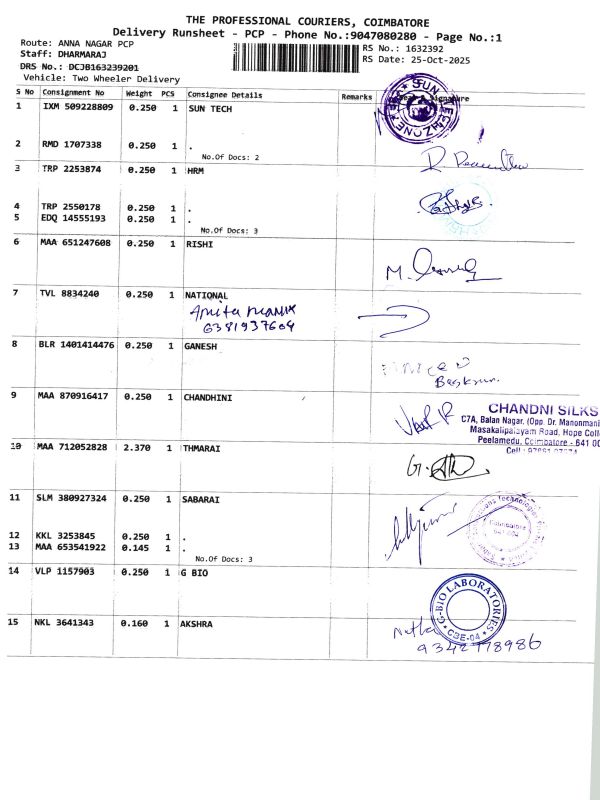 THE PROFESSIONAL COURIERS, COIMBATORE
Delivery Runsheet - PCP - Phone No.:9047080280 - Page No.:1
Route: ANNA NAGAR PCP
RS No.: 1632392
Staff: DHARMARAJ
RS Date: 25-Oct-2025
DRS No.: DCJB163239201
Vehicle: Two Wheeler Delivery
S No Consignment No Weight PCS Consignee Details Remarks Signature
1 IXM 509228809 0.250 1 SUN TECH
SUN
2 RMD 1707338 0.250 1 .
No.Of Docs: 2
3 TRP 2253874 0.250 1 HRM
4 TRP 2550178 0.250 1 .
5 EDQ 14555193 0.250 1 .
No.Of Docs: 3
6 MAA 651247608 0.250 1 RISHI
M.
7 TVL 8834240 0.250 1 NATIONAL
Amita manix
6381937604
8 BLR 1401414476 0.250 1 GANESH
Baskran.
9 MAA 870916417 0.250 1 CHANDHINI
CHANDNI SILKS
C7A, Balan Nagar, (Opp. Dr. Manonmani
Masakalipalayam Road, Hope Coll
Peelamedu, Coimbatore - 641 00
Cell :
10 MAA 712052828 2.370 1 THMARAI
G.
11 SLM 380927324 0.250 1 SABARAI
Technologies
Coimbatore
12 KKL 3253845 0.250 1 .
13 MAA 653541922 0.145 1 .
No.Of Docs: 3
14 VLP 1157903 0.250 1 G BIO
G-BIO LABORATORIES
* CBE-04 *
15 NKL 3641343 0.160 1 AKSHRA
9342778986